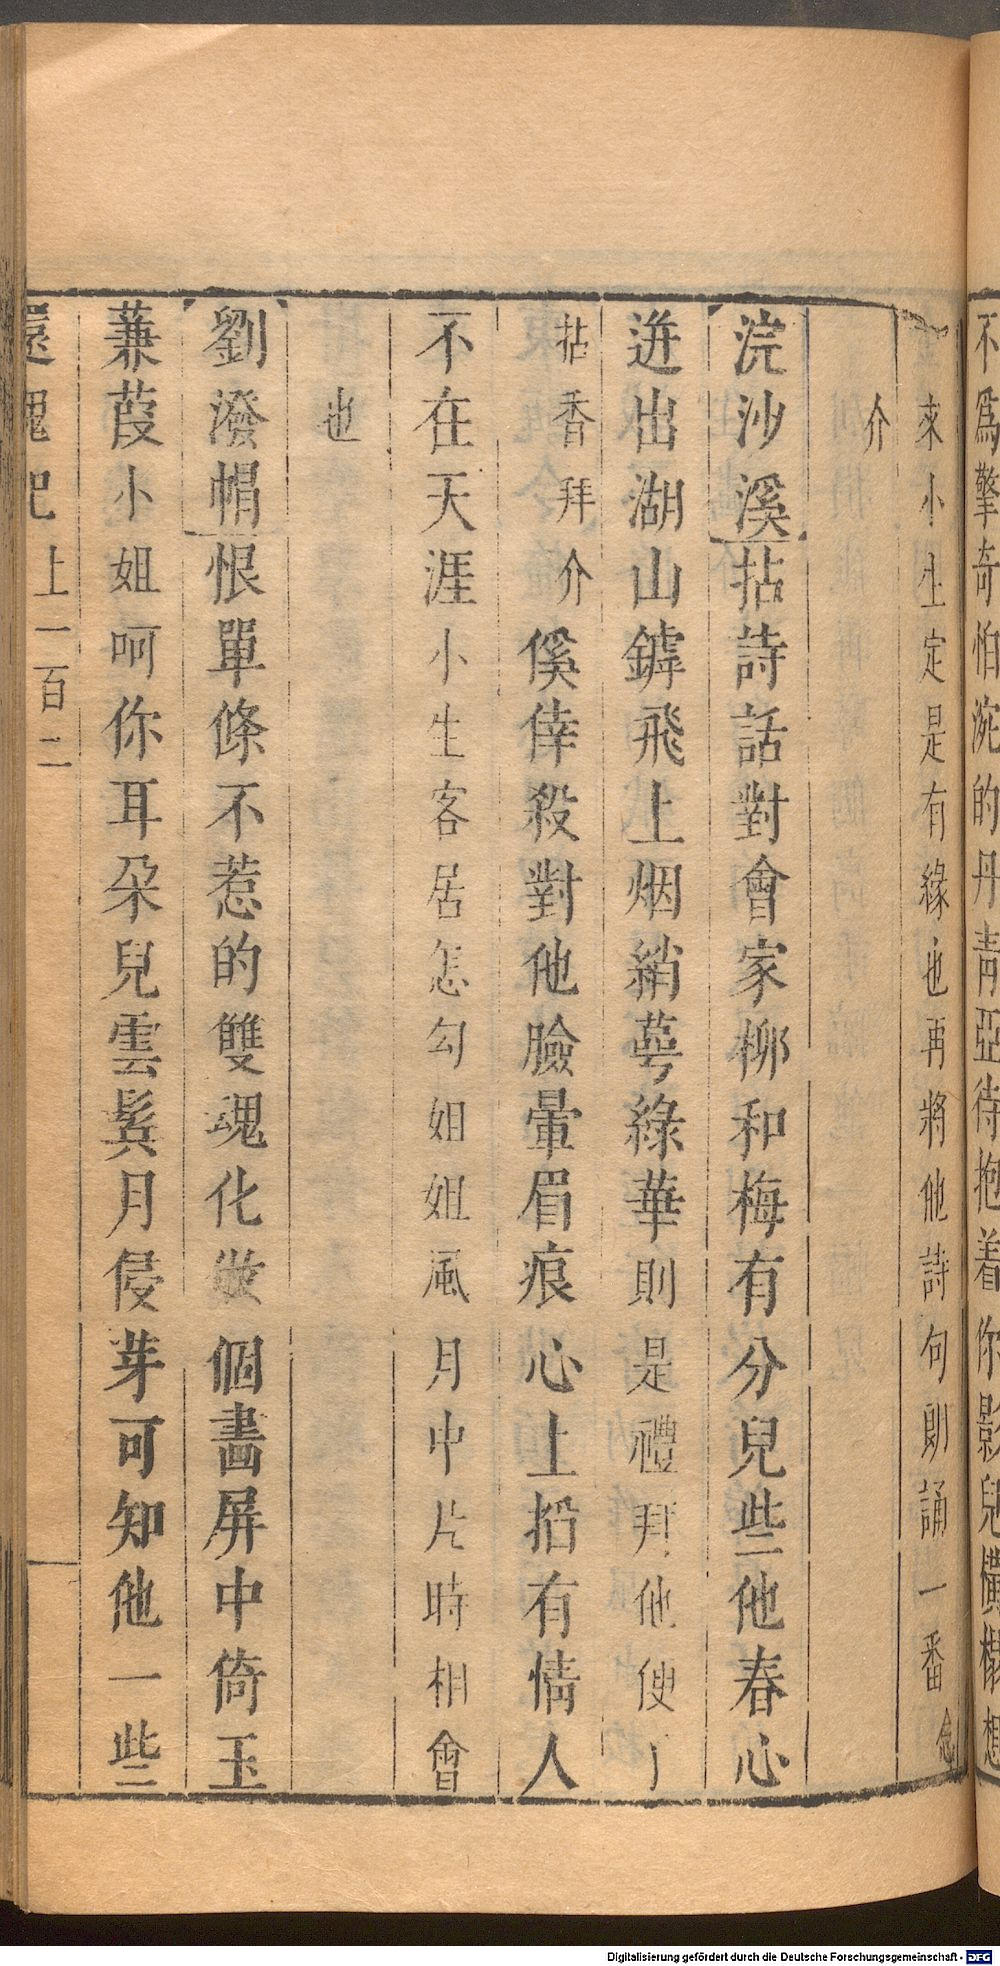 不爲擎奇怕涴的丹靑亞待抱着你影兒橫榻想
來小生定是有緣也再將他詩句則誦一番念
介
浣沙溪拈詩話對會家柳和梅有分兒些他春心
迸出湖山罅飛上烟綃萼綠華則是禮拜他便了
拈香拜介傒倖殺對他臉暈眉痕心上掐有情人
不在天涯小生客居怎勾姐姐風月中片時相會
也
劉潑帽恨單條不惹的雙魂化做個畵屏中倚玉
蒹葭小姐呵你耳朶兒雲鬂月侵芽可知他一些
還魂記 上一百二
Digitalisierung gefördert durch die Deutsche Forschungsgemeinschaft - DFG